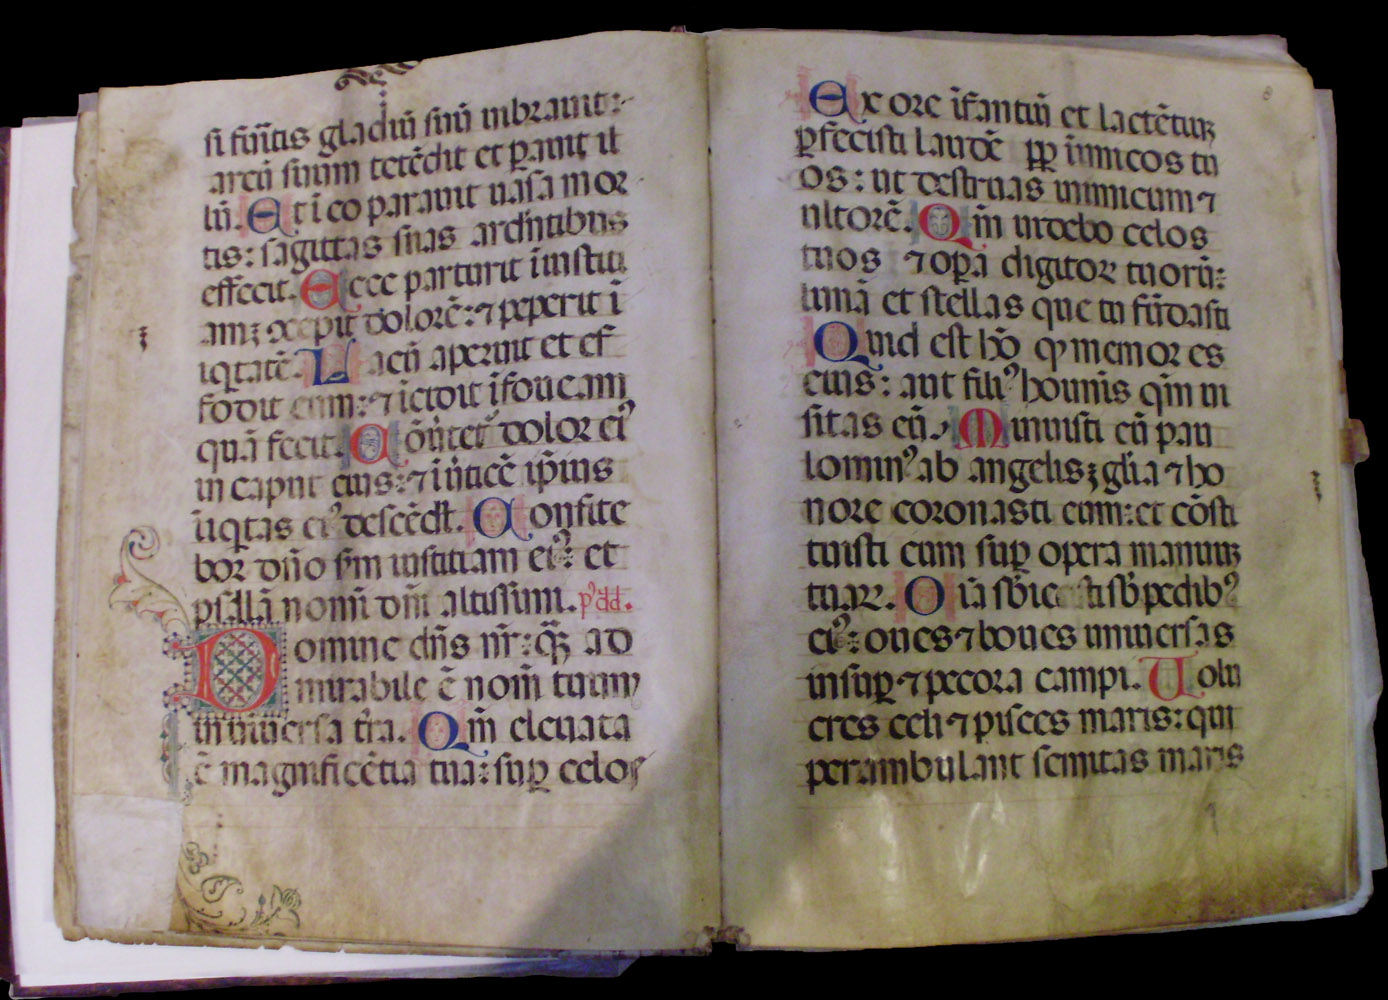 si fũtis gladiũ suũ uibrauit:
arcũ suum tetẽdit et ꝑauit il
lũ. Et ĩ eo parauit uasa mor
tis: sagittas suas ardẽtibus
effecit. Ecce parturit ĩiustici
am: ꝯcepit dolorẽ: ⁊ peperit ĩ
iq̃tatẽ. Lacũ aperuit et ef
fodit eum: ⁊ icidit ĩ foueam
quã fecit. Cõũtet᷑ dolor ei⁹
in caput eius: ⁊ ĩ ũticẽ ip̃ius
ĩiq̃tas ei⁹ descẽdet. Confite
bor dño s̃m iustitiam ei⁹: et
psallã nomĩ dñi altissimi. p̃⁹ dd̃.
Domine dñs nr̃: q̃ꝫ ad
mirabile ẽ nom̃ tuum
in uniuersa t̃ra. Qm̃ eleuata
ẽ magnificẽtia tua: suꝑ celos
8
Ex ore ĩfantiũ et lactẽtiuꝫ
ꝑfecisti laudẽ ꝓpꝑ inimicos tu
os: ut destruas inimicum ⁊
ultorẽ. Qm̃ uidebo celos
tuos ⁊ oꝑa digitoꝝ tuorũ:
lunã et stellas que tu fũdasti
Quid est hõ ꝙ memor es
eius: aut fili⁹ hominis qm̃ ui
sitas eũ. Minuisti eũ pau
lominꝰ ab angelis; gl̃ia ⁊ ho
nore coronasti eum: et cõsti
tuisti eum suꝑ opera manuuꝫ
tuaꝝ. Oĩa sbiecisti sb̃ pedib⁹
ei⁹: oues ⁊ boues uniuersas
insuꝑ ⁊ pecora campi. Uolu
cres celi ⁊ pisces maris: qui
perambulant semitas maris